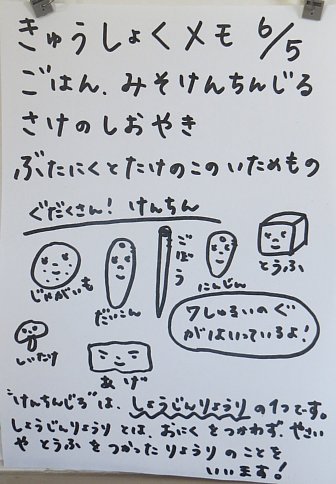 きゅうしょくメモ 6/5
ごはん、みそけんちんじる
さけのしおやき
ぶたにくとたけのこのいためもの
ぐだくさん! けんちん
じゃがいも
だいこん
ごぼう
にんじん
とうふ
しいたけ
あげ
7しゅるいのぐ
がはいっているよ!
"けんちんじる"は、しょうじんりょうり の1つです。
しょうじんりょうり とは、おにくをつかわず、やさい
や とうふ をつかった りょうり のことを
いいます!